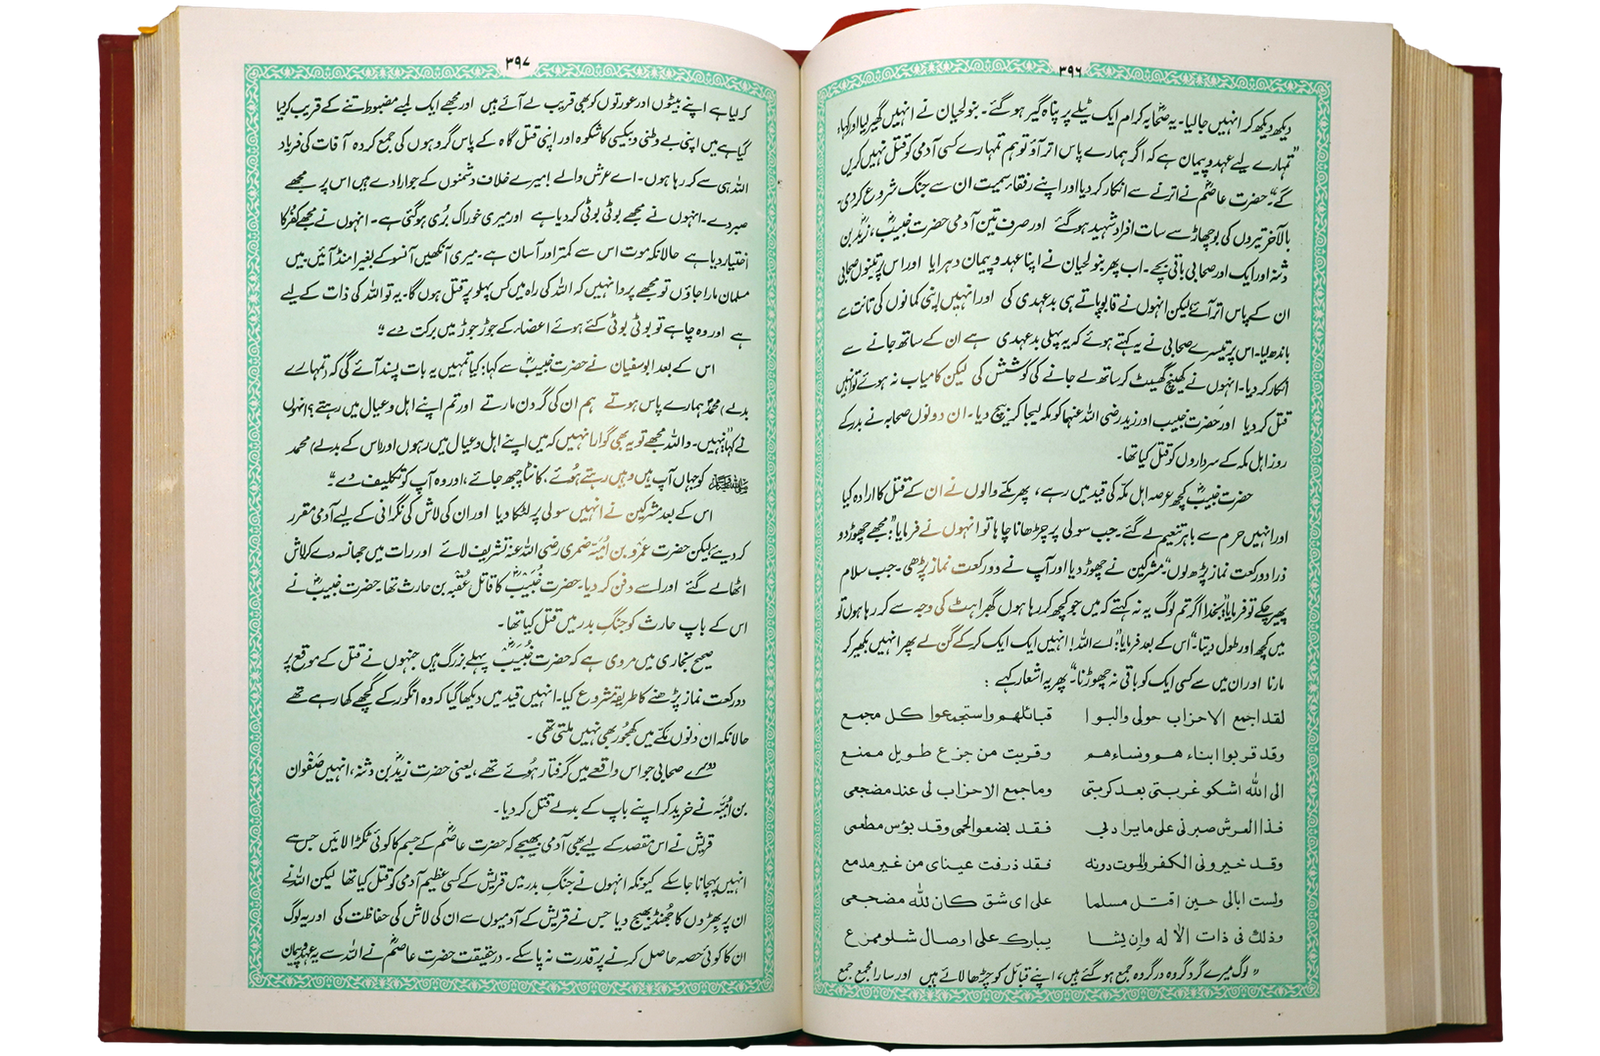 ۳۹۶
دیکھ دیکھ کر انہیں جالیا۔ یہ صحابہ کرام ایک ٹیلے پر پناہ گیر ہو گئے۔ بنو لحیان نے انہیں گھیر لیا اور کہا؛
"تمہارے لیے عہد و پیمان ہے کہ اگر ہمارے پاس اتر آؤ تو ہم تمہارے کسی آدمی کو قتل نہیں کریں
گے"۔ حضرت عاصمؓ نے اترنے سے انکار کر دیا اور اپنے رفقار سمیت ان سے جنگ شروع کر دی۔
بالآخر تیروں کی بوچھاڑ سے سات افراد شہید ہو گئے اور صرف تین آدمی حضرت خبیبؓ، زیدؓ بن
دثنہ اور ایک اور صحابی باقی بچے۔ اب پھر بنو لحیان نے اپنا عہد و پیمان دہرایا اور اس پر تینوں صحابی
ان کے پاس اتر آئے لیکن انہوں نے قابو پاتے ہی بدعہدی کی اور انہیں اپنی کمانوں کی تانت سے
باندھ لیا۔ اس پر تیسرے صحابی نے یہ کہتے ہوئے کہ یہ پہلی بدعہدی ہے ان کے ساتھ جانے سے
انکار کر دیا۔ انہوں نے کھینچ گھسیٹ کر ساتھ لے جانے کی کوشش کی لیکن کامیاب نہ ہوئے تو انہیں
قتل کر دیا اور حضرت خبیب اور زید رضی اللہ عنہما کو مکہ لیجا کر بیچ دیا۔ ان دونوں صحابہ نے بدر کے
روز اہل مکہ کے سرداروں کو قتل کیا تھا۔
حضرت خبیبؓ کچھ عرصہ اہل مکہ کی قید میں رہے، پھر مکے والوں نے ان کے قتل کا ارادہ کیا
اور انہیں حرم سے باہر تنعیم لے گئے۔ جب سولی پر چڑھانا چاہا تو انہوں نے فرمایا: "مجھے چھوڑ دو
ذرا دو رکعت نماز پڑھ لوں"۔ مشرکین نے چھوڑ دیا اور آپ نے دو رکعت نماز پڑھی۔ جب سلام
پھیر چکے تو فرمایا: "بخدا اگر تم لوگ یہ نہ کہتے کہ میں جو کچھ کر رہا ہوں گھبراہٹ کی وجہ سے کر رہا ہوں تو
میں کچھ اور طول دیتا"۔ اس کے بعد فرمایا: "اے اللہ! انہیں ایک ایک کر کے گن لے پھر انہیں بکھیر کر
مارنا اور ان میں سے کسی ایک کو باقی نہ چھوڑنا"۔ پھر یہ اشعار کہے :
لقد اجمع الاحزاب حولی والبوا قبائلهم واستجمعوا کل مجمع
وقد قربوا ابناء هم ونساءهم وقربت من جزع طویل ممنع
الی الله اشکو غربتی بعد کربتی وما جمع الاحزاب لی عند مضجعی
فذا العرش صبرنی علی ما یراد بی فقد بضعوا لحمی وقد بؤس مطعمی
وقد خیرونی الکفر والموت دونه فقد ذرفت عینای من غیر مدمع
ولست ابالی حین اقتل مسلما علی ای شق کان لله مضجعی
وذلک فی ذات الاله وان یشا یبارک علی اوصال شلو ممزع
"لوگ میرے گرد گروہ در گروہ جمع ہو گئے ہیں، اپنے قبائل کو چڑھا لائے ہیں اور سارا مجمع جمع
۳۹۷
کر لیا ہے اپنے بیٹوں اور عورتوں کو بھی قریب لے آئے ہیں اور مجھے ایک لمبے مضبوط تنے کے قریب کر دیا
گیا ہے میں اپنی بے وطنی و بیکسی کا شکوہ اور اپنی قتل گاہ کے پاس گروہوں کی جمع کردہ آفات کی فریاد
اللہ ہی سے کر رہا ہوں۔ اے عرش والے! میرے خلاف دشمنوں کے جو ارادے ہیں اس پر مجھے
صبر دے۔ انہوں نے مجھے بوٹی بوٹی کر دیا ہے اور میری خوراک بُری ہو گئی ہے۔ انہوں نے مجھے کفر کا
اختیار دیا ہے حالانکہ موت اس سے کمتر اور آسان ہے۔ میری آنکھیں آنسو کے بغیر امنڈ آئیں۔ میں
مسلمان مارا جاؤں تو مجھے پروا نہیں کہ اللہ کی راہ میں کس پہلو پر قتل ہوں گا۔ یہ تو اللہ کی ذات کے لیے
ہے اور وہ چاہے تو بوٹی بوٹی کئے ہوئے اعضاء کے جوڑ جوڑ میں برکت دے"۔
اس کے بعد ابوسفیان نے حضرت خبیبؓ سے کہا: کیا تمہیں یہ بات پسند آئے گی کہ (تمہارے
بدلے) محمدؐ ہمارے پاس ہوتے ہم ان کی گردن مارتے اور تم اپنے اہل و عیال میں رہتے؟ انہوں
نے کہا: "نہیں۔ واللہ مجھے تو یہ بھی گوارا نہیں کہ میں اپنے اہل و عیال میں رہوں اور (اس کے بدلے) محمد
ﷺ کو جہاں آپ ہیں وہیں رہتے ہوئے، کانٹا چبھ جائے، اور وہ آپ کو تکلیف دے"۔
اس کے بعد مشرکین نے انہیں سولی پر لٹکا دیا اور ان کی لاش کی نگرانی کے لیے آدمی مقرر
کر دیے لیکن حضرت عمرو بن امیہ ضمری رضی اللہ عنہ تشریف لائے اور رات میں جھانسہ دے کر لاش
اٹھا لے گئے اور اسے دفن کر دیا۔ حضرت خبیبؓ کا قاتل عقبہ بن حارث تھا۔ حضرت خبیبؓ نے
اس کے باپ حارث کو جنگِ بدر میں قتل کیا تھا۔
صحیح بخاری میں مروی ہے کہ حضرت خبیبؓ پہلے بزرگ ہیں جنہوں نے قتل کے موقع پر
دو رکعت نماز پڑھنے کا طریقہ مشروع کیا۔ انہیں قید میں دیکھا گیا کہ وہ انگور کے گچھے کھا رہے تھے
حالانکہ ان دنوں مکے میں کھجور بھی نہیں ملتی تھی۔
دوسرے صحابی جو اس واقعے میں گرفتار ہوئے تھے، یعنی حضرت زیدؓ بن دثنہ، انہیں صفوان
بن اُمیّہ نے خرید کر اپنے باپ کے بدلے قتل کر دیا۔
قریش نے اس مقصد کے لیے بھی آدمی بھیجے کہ حضرت عاصمؓ کے جسم کا کوئی ٹکڑا لائیں جس سے
انہیں پہچانا جا سکے کیونکہ انہوں نے جنگ بدر میں قریش کے کسی عظیم آدمی کو قتل کیا تھا لیکن اللہ نے
ان پر بھڑوں کا جھنڈ بھیج دیا جس نے قریش کے آدمیوں سے ان کی لاش کی حفاظت کی اور یہ لوگ
ان کا کوئی حصہ حاصل کرنے پر قدرت نہ پا سکے۔ درحقیقت حضرت عاصمؓ نے اللہ سے یہ عہد و پیمان